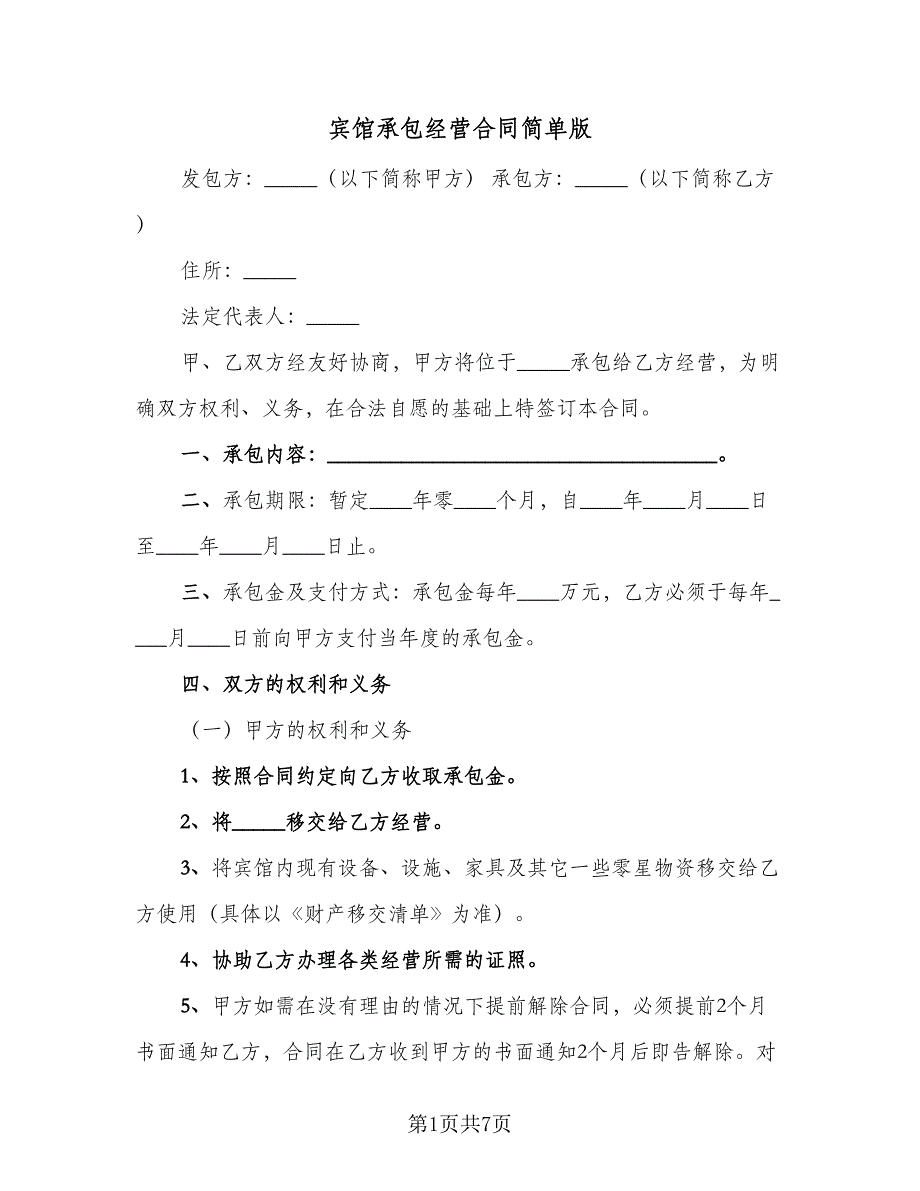 宾馆承包经营合同简单版
发包方：_____（以下简称甲方） 承包方：_____（以下简称乙方
）
住所：_____
法定代表人：_____
甲、乙双方经友好协商，甲方将位于_____承包给乙方经营，为明
确双方权利、义务，在合法自愿的基础上特签订本合同。
一、承包内容：_____________________________________。
二、承包期限：暂定____年零____个月，自____年____月____日
至____年____月____日止。
三、承包金及支付方式：承包金每年____万元，乙方必须于每年_
___月____日前向甲方支付当年度的承包金。
四、双方的权利和义务
（一）甲方的权利和义务
1、按照合同约定向乙方收取承包金。
2、将_____移交给乙方经营。
3、将宾馆内现有设备、设施、家具及其它一些零星物资移交给乙
方使用（具体以《财产移交清单》为准）。
4、协助乙方办理各类经营所需的证照。
5、甲方如需在没有理由的情况下提前解除合同，必须提前2个月
书面通知乙方，合同在乙方收到甲方的书面通知2个月后即告解除。对
第1页共7页